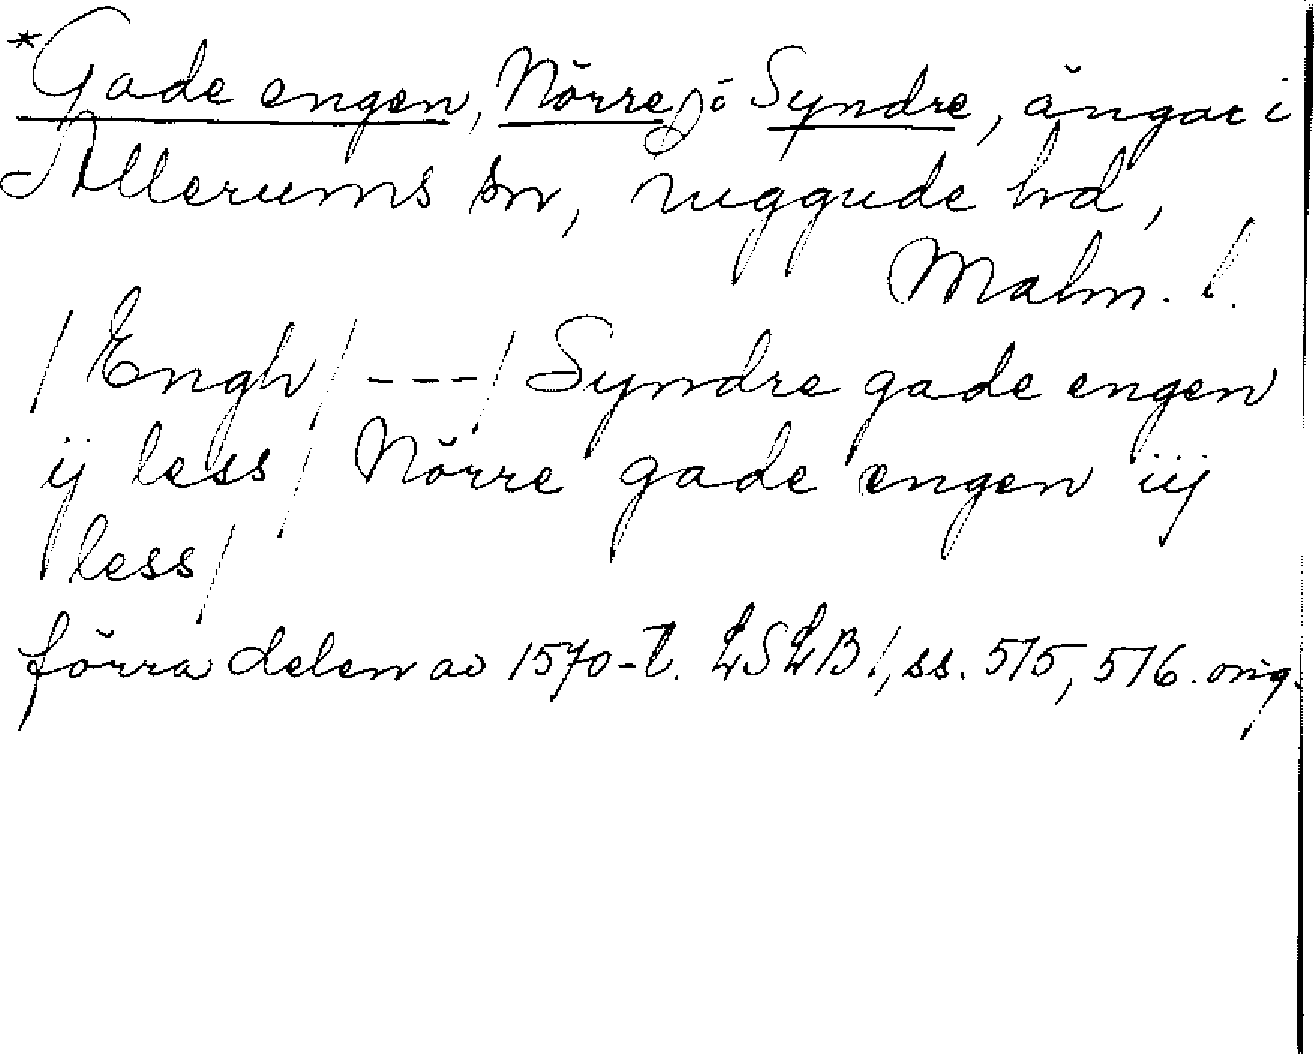 *Gade engen, Nörre, o Syndre, ängar i
Allerums sn, Luggude hd,
Malm. l.
/ Engh / --- / Syndre gade engen
ij less / Nörre gade engen iij
less /
förra delen av 1570-t. LSLB 1, ss. 515, 516. orig.